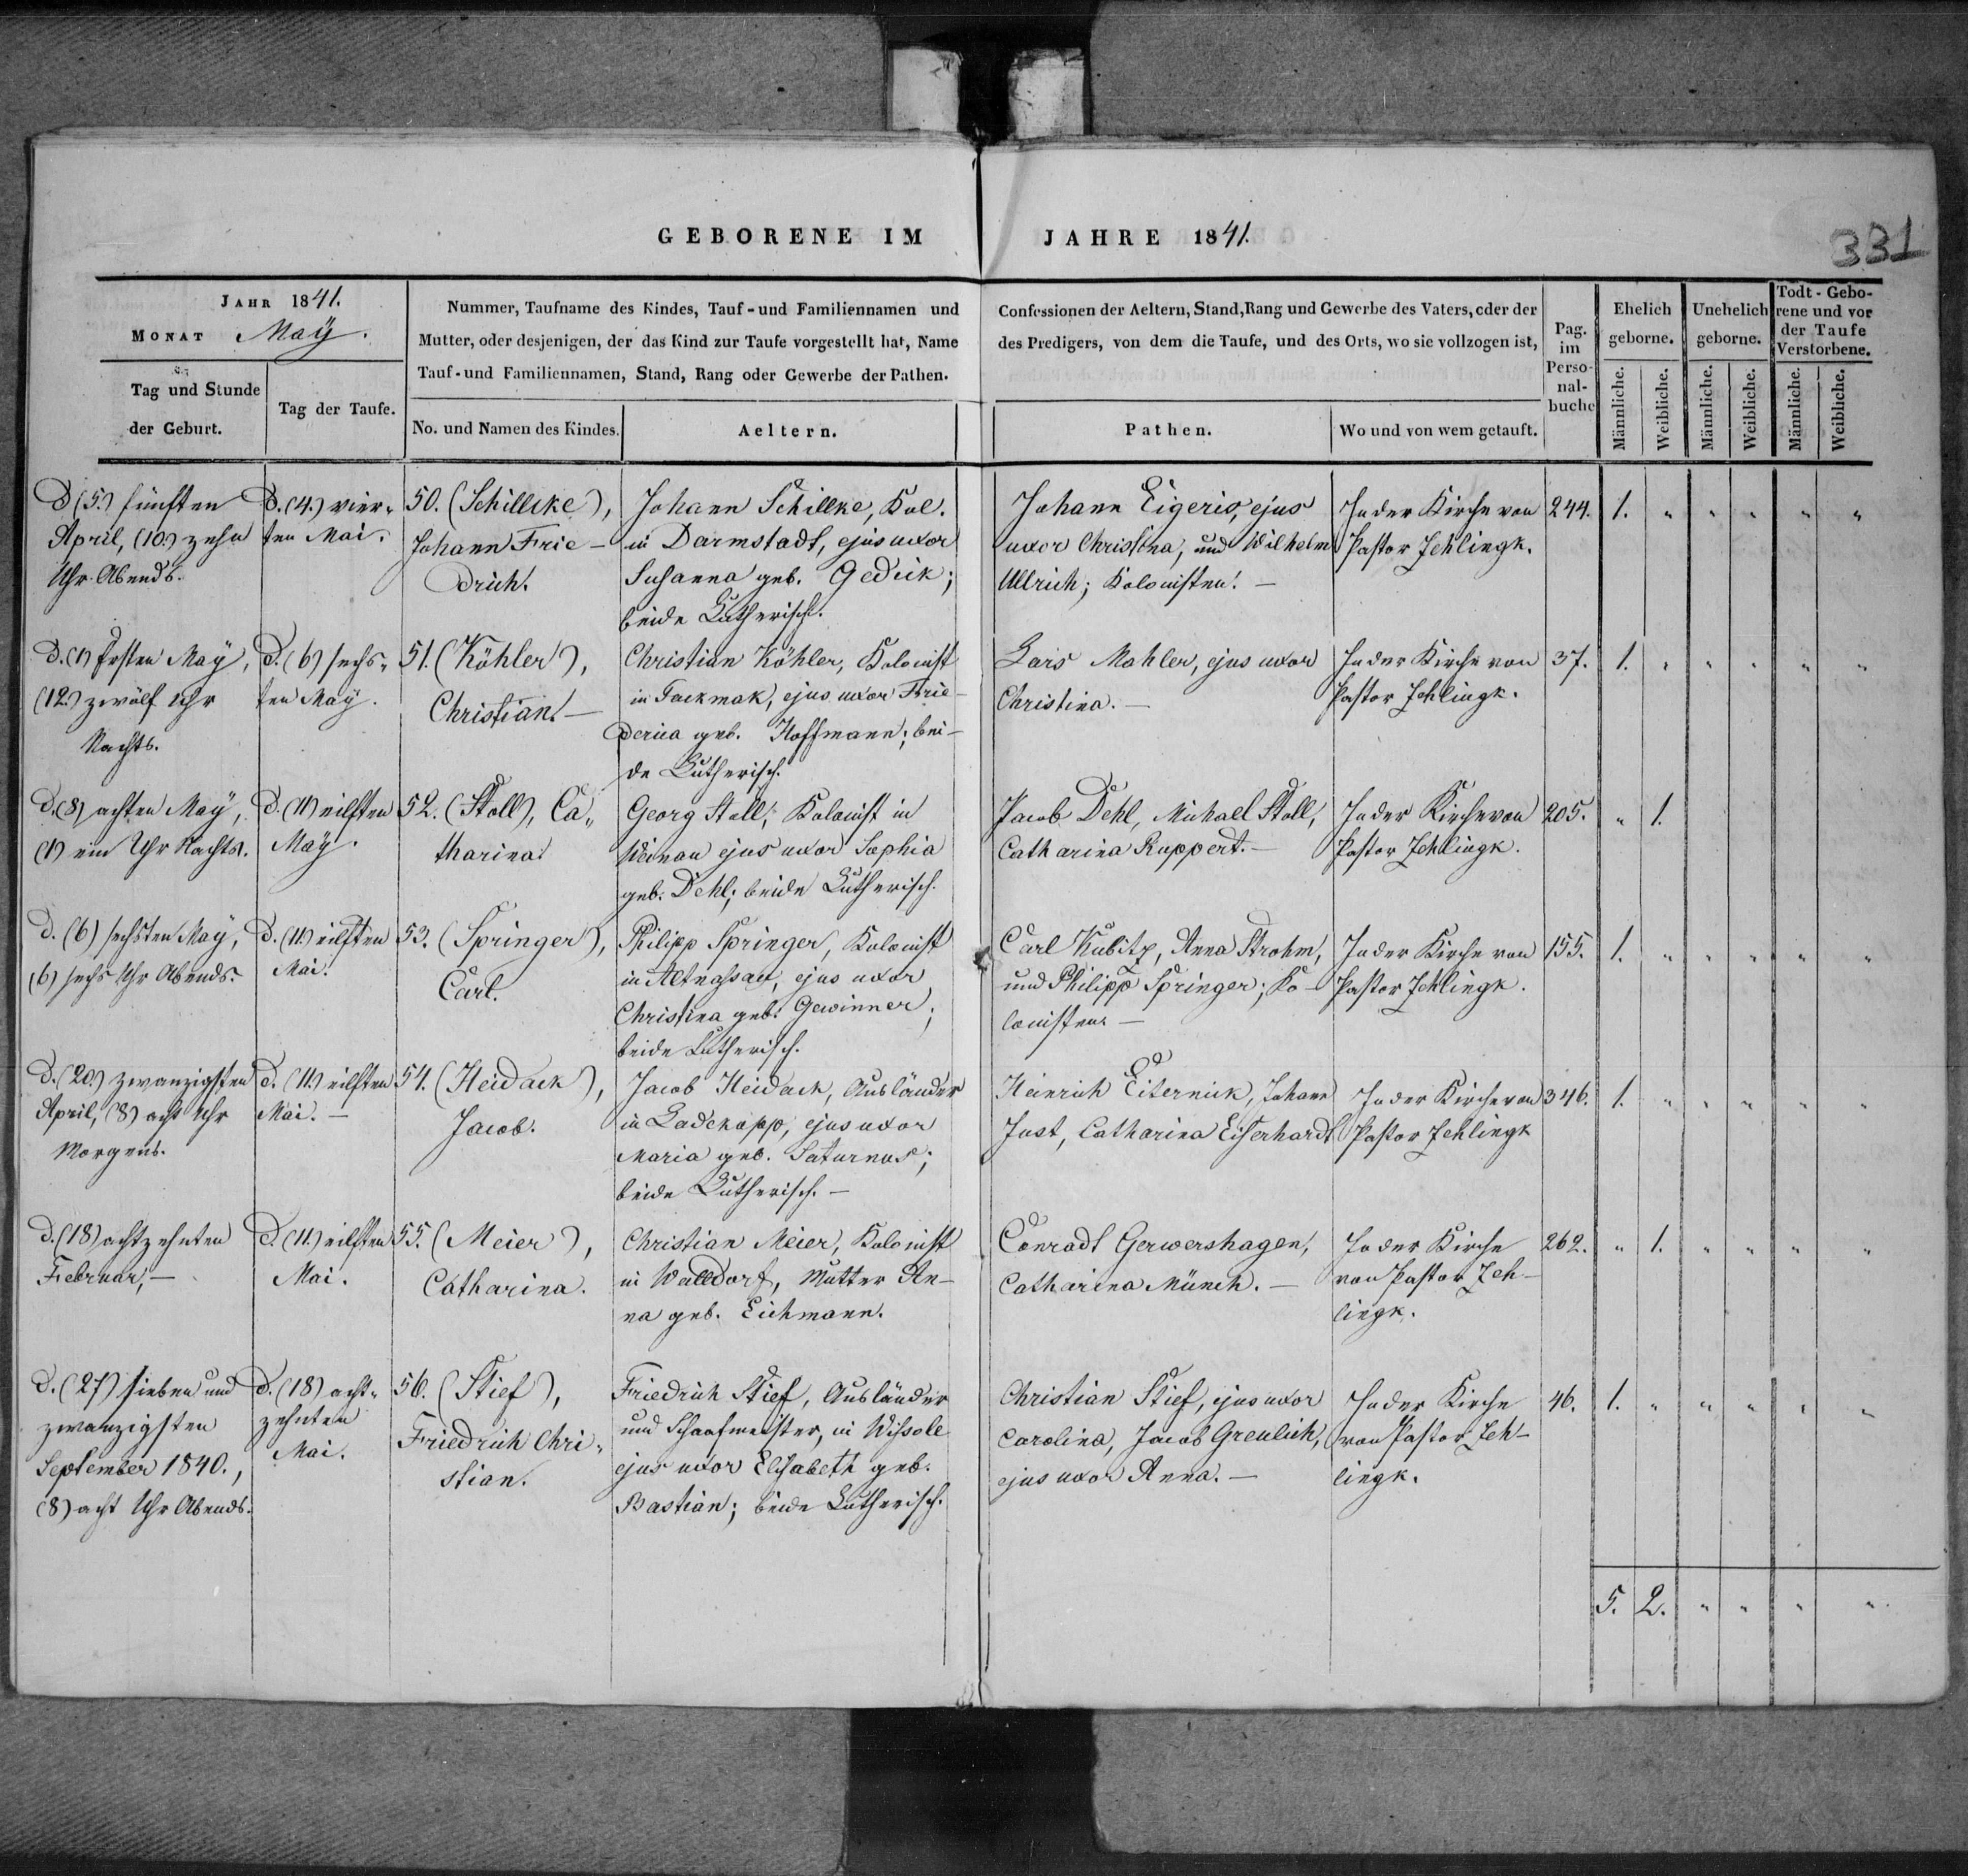 GEBORENE IM JAHRE 1841.
331
JAHR 1841.
MONAT Maÿ.
Tag und Stunde
der Geburt.
Tag der Taufe.
Nummer, Taufname des Kindes, Tauf- und Familiennamen und
Mutter, oder desjenigen, der das Kind zur Taufe vorgestellt hat, Name
Tauf- und Familiennamen, Stand, Rang oder Gewerbe der Pathen.
No. und Namen des Kindes.
Aeltern.
Confessionen der Aeltern, Stand, Rang und Gewerbe des Vaters, oder der
des Predigers, von dem die Taufe, und des Orts, wo sie vollzogen ist,
Pathen.
Wo und von wem getauft.
Pag.
im
Perso-
nal-
buche
Ehelich
geborne.
Unehelich
geborne.
Todt-Gebo-
rene und vor
der Taufe
Verstorbene.
Männliche.
Weibliche.
Männliche.
Weibliche.
Männliche.
Weibliche.
D (5.) fünften
April, (10.) zehn
Uhr Abends.
D. (4.) vier-
ten Mai.
50. (Schillcke),
Johann Frie-
drich.
Johann Schillke, Kol.
in Darmstadt, ejus uxor
Susanna geb. Gedeik;
beide Lutherisch.
Johann Eigeris, ejus
uxor Christina, und Wilhelm
Ullrich; Kolonisten. —
In der Kirche von
Pastor Zehlingk.
244. 1. " " " " "
D. (1) Ersten Maÿ,
(12.) zwölf Uhr
Nachts.
D. (6) sechs-
ten Maÿ.
51. (Köhler),
Christian. —
Christian Köhler, Kolonist
in Tackmak, ejus uxor Frie-
derica geb. Hoffmann; bei-
de Lutherisch.
Lars Mahler, ejus uxor
Christina. —
In der Kirche von
Pastor Zehlingk.
37. 1. " " " " "
D. (8) achten Maÿ,
(1) ein Uhr Nachts.
D. (11) eilften
Maÿ.
52. (Stoll), Ca-
tharina.
Georg Stoll, Kolonist in
Weinau ejus uxor Sophia
geb. Dehl; beide Lutherisch.
Jacob Dehl, Michael Stoll,
Catharina Ruppert. —
In der Kirche von
Pastor Zehlingk.
205. " 1.
D. (6) sechsten Maÿ,
(6) sechs Uhr Abends.
D. (11.) eilften
Mai.
53. (Springer),
Carl.
Philipp Springer, Kolonist
in Altnassau, ejus uxor
Christina geb. Gewinner;
beide Lutherisch.
Carl Kubitz, Anna Strohm,
und Philipp Springer; Ko-
lonisten. —
In der Kirche von
Pastor Zehlingk.
155. 1. " " " " "
D. (20.) zwanzigsten
April, (8) acht Uhr
Morgens.
D. (11.) eilften
Mai. —
54. (Heidack),
Jacob.
Jacob Heidack, Ausländer
in Ladekopp, ejus uxor
Maria geb. Saturnus;
beide Lutherisch. —
Heinrich Eiternick, Johann
Just, Catharina Eiserhardt
In der Kirche von
Pastor Zehlingk
346. 1. " " " " "
D. (18) achtzehnten
Februar, —
D. (11.) eilften
Mai.
55. (Meier),
Catharina.
Christian Meier, Kolonist
in Walldorf, Mutter An-
na geb. Eichmann.
Conradt Gerwershagen,
Catharina Münch. —
In der Kirche
von Pastor Zeh-
lingk.
262. " 1. " " " "
D. (27) sieben und
zwanzigsten
September 1840.,
(8) acht Uhr Abends.
D. (18) acht-
zehnten
Mai.
56. (Stief),
Friedrich Chri-
stian.
Friedrich Stief, Ausländer
und Schaafmeister, in Wissole
ejus uxor Elisabeth geb.
Bastian; beide Lutherisch.
Christian Stief, ejus uxor
Carolina, Jacob Greulich,
ejus uxor Anna. —
In der Kirche
von Pastor Zeh-
lingk.
46. 1. " " " " "
5. 2. " " " "